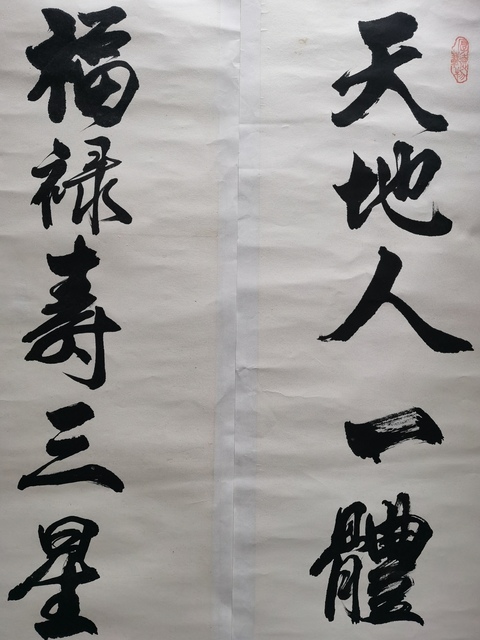 天地人一體
福禄壽三星